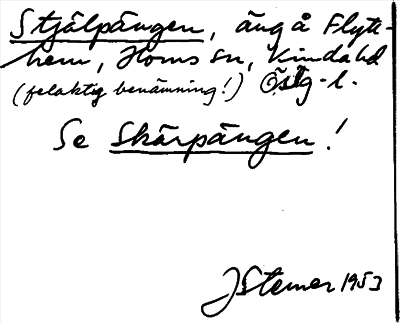 Stjälpängen, äng å Flytt-
hem, Horns sn, Kinda hd
(felaktig benämning!) Östg-l.
Se Skärpängen!
J Sterner 1953